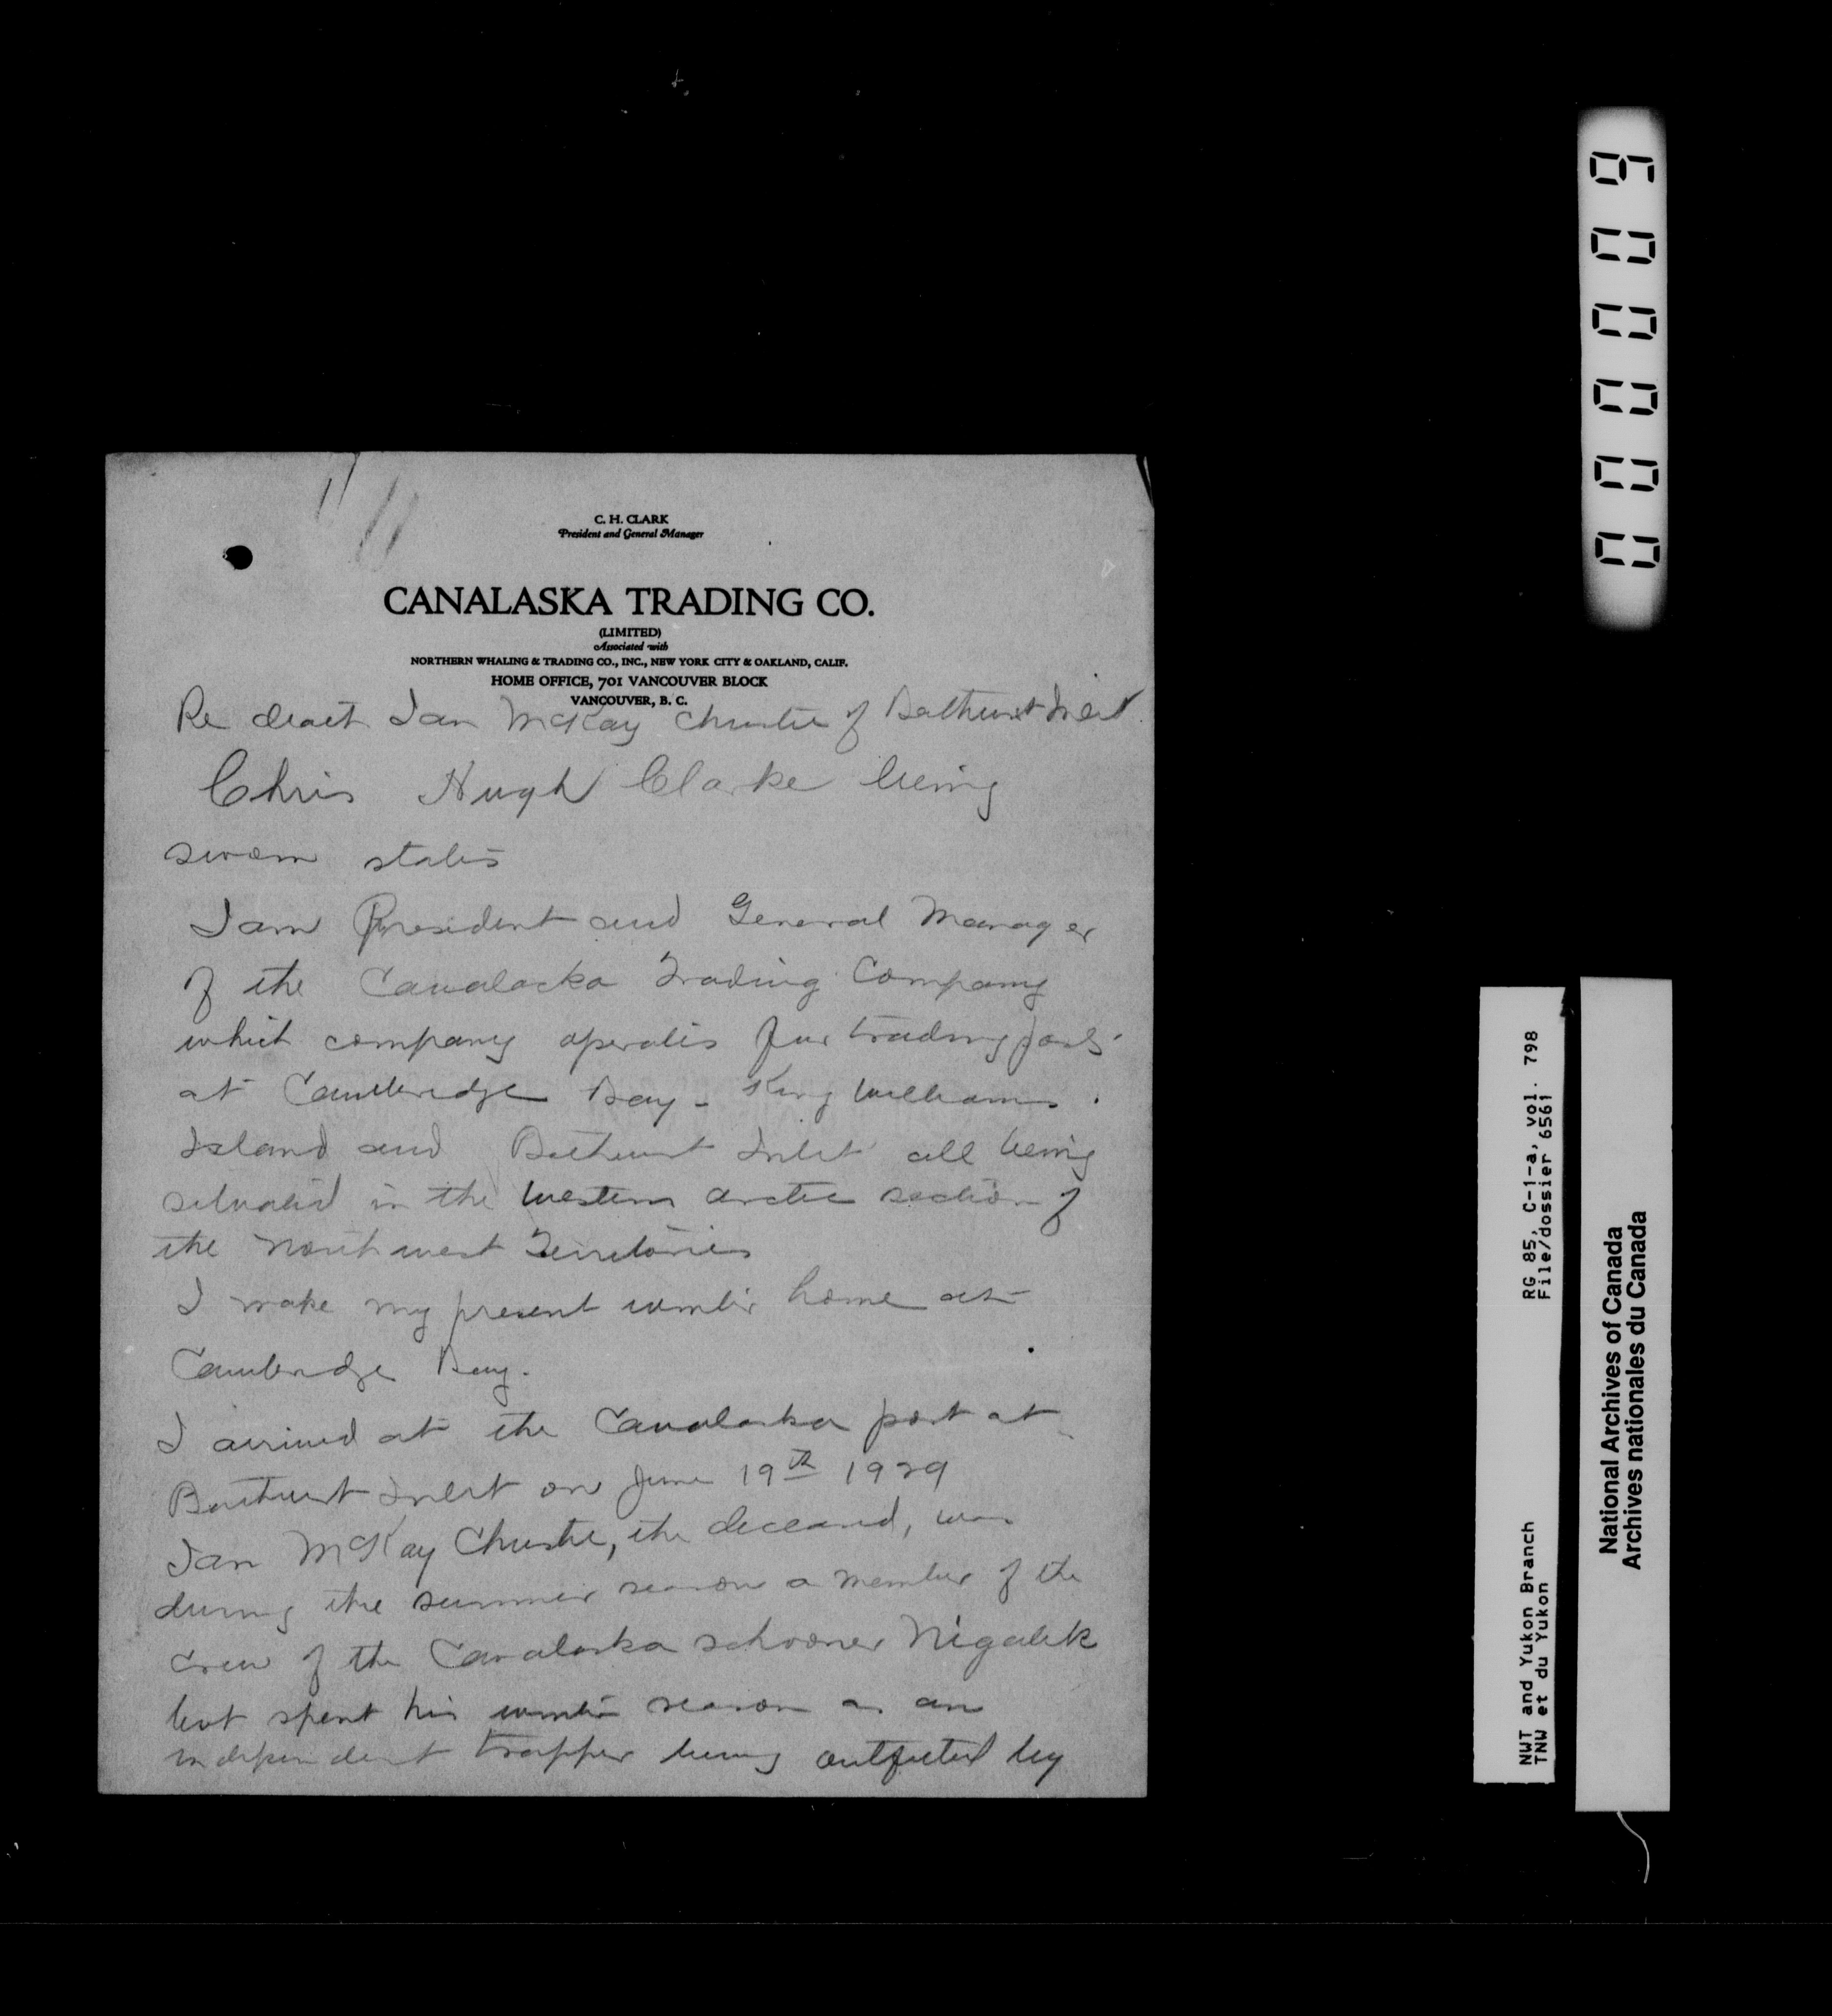 C. H. CLARK
President and General Manager
CANALASKA TRADING CO.
(LIMITED)
Associated with
NORTHERN WHALING & TRADING CO., INC., NEW YORK CITY & OAKLAND, CALIF.
HOME OFFICE, 701 VANCOUVER BLOCK
VANCOUVER, B. C.
Re death Ian McKay Christie of Bathurst Inlet
Chris Hugh Clarke being
sworn states
I am President and General Manager
of the Canalaska Trading Company
which company operates fur trading posts
at Cambridge Bay - King Williams
Island and Bathurst Inlet all being
situated in the Western Arctic section of
the North west Territories
I make my present winter home at
Cambridge Bay.
I arrived at the Canalaska post at
Bathurst Inlet on June 19th 1929
Ian McKay Christie, the deceased, was
during the summer season a member of the
crew of the Canalaska schooner Nigalik
but spent his winter season as an
independent trapper being outfitted by
000009
RG 85, C-1-a, vol. 798
File/dossier 6561
NWT and Yukon Branch
TNW et du Yukon
National Archives of Canada
Archives nationales du Canada